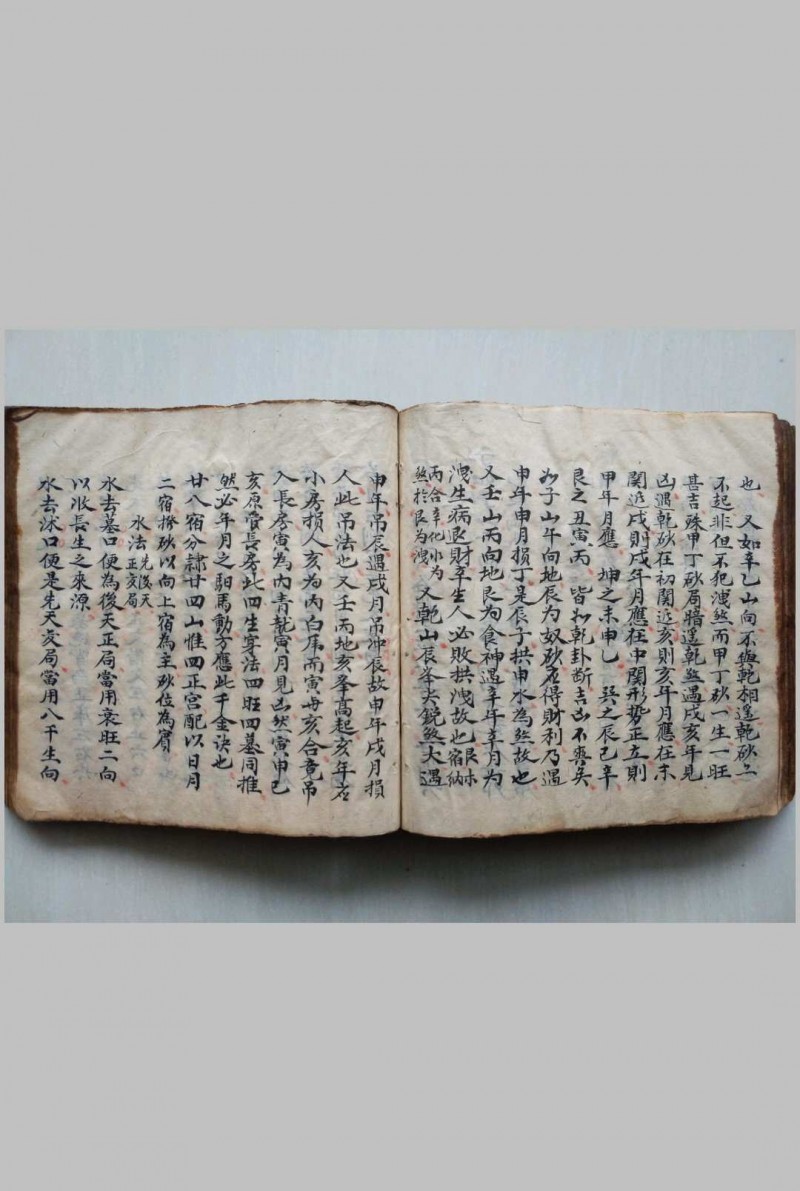 也 又如辛乙山向不與乾相逢乾砂上
不起非但不犯洩煞而甲丁砂一生一旺
甚吉殊甲丁砂局暗逢乾煞遇戌亥年見
凶遇乾砂在初関近亥則亥年月應在末
関近戌則戌年月應在中関形势正立則
甲年月應 坤之未申乙 巽之辰巳辛
艮之丑寅丙 皆和乾卦断吉凶不爽矣
如子山午向地辰为奴砂居得財利乃遇
申年申月損丁是辰子拱申水為煞故也
又壬山丙向地艮为食神遇辛年辛月为
洩生病退財辛生人必敗拱洩故也宿納
艮木
丙合辛化水为
煞於艮为洩
又乾山辰峯尖銳煞大遇
申年吊辰遇戌月吊冲辰故申年戌月損
人此吊法也又壬丙地亥峯高起亥年居
小房損人亥为内白虎而寅每亥合竟吊
入長房寅為内青龍寅月見凶然寅申巳
亥原管長房此四生穿法四旺四墓同推
然必年月之馹馬動方應此千金訣也
廿八宿分隷廿四山惟四正宫配以日月
二宿撥砂以向上宿為主砂位為賓
水法
先後天
正交局
水去墓口便為後天正局當用衰旺二向
以收長生之來源
水去沐口便是先天交局當用八干生向